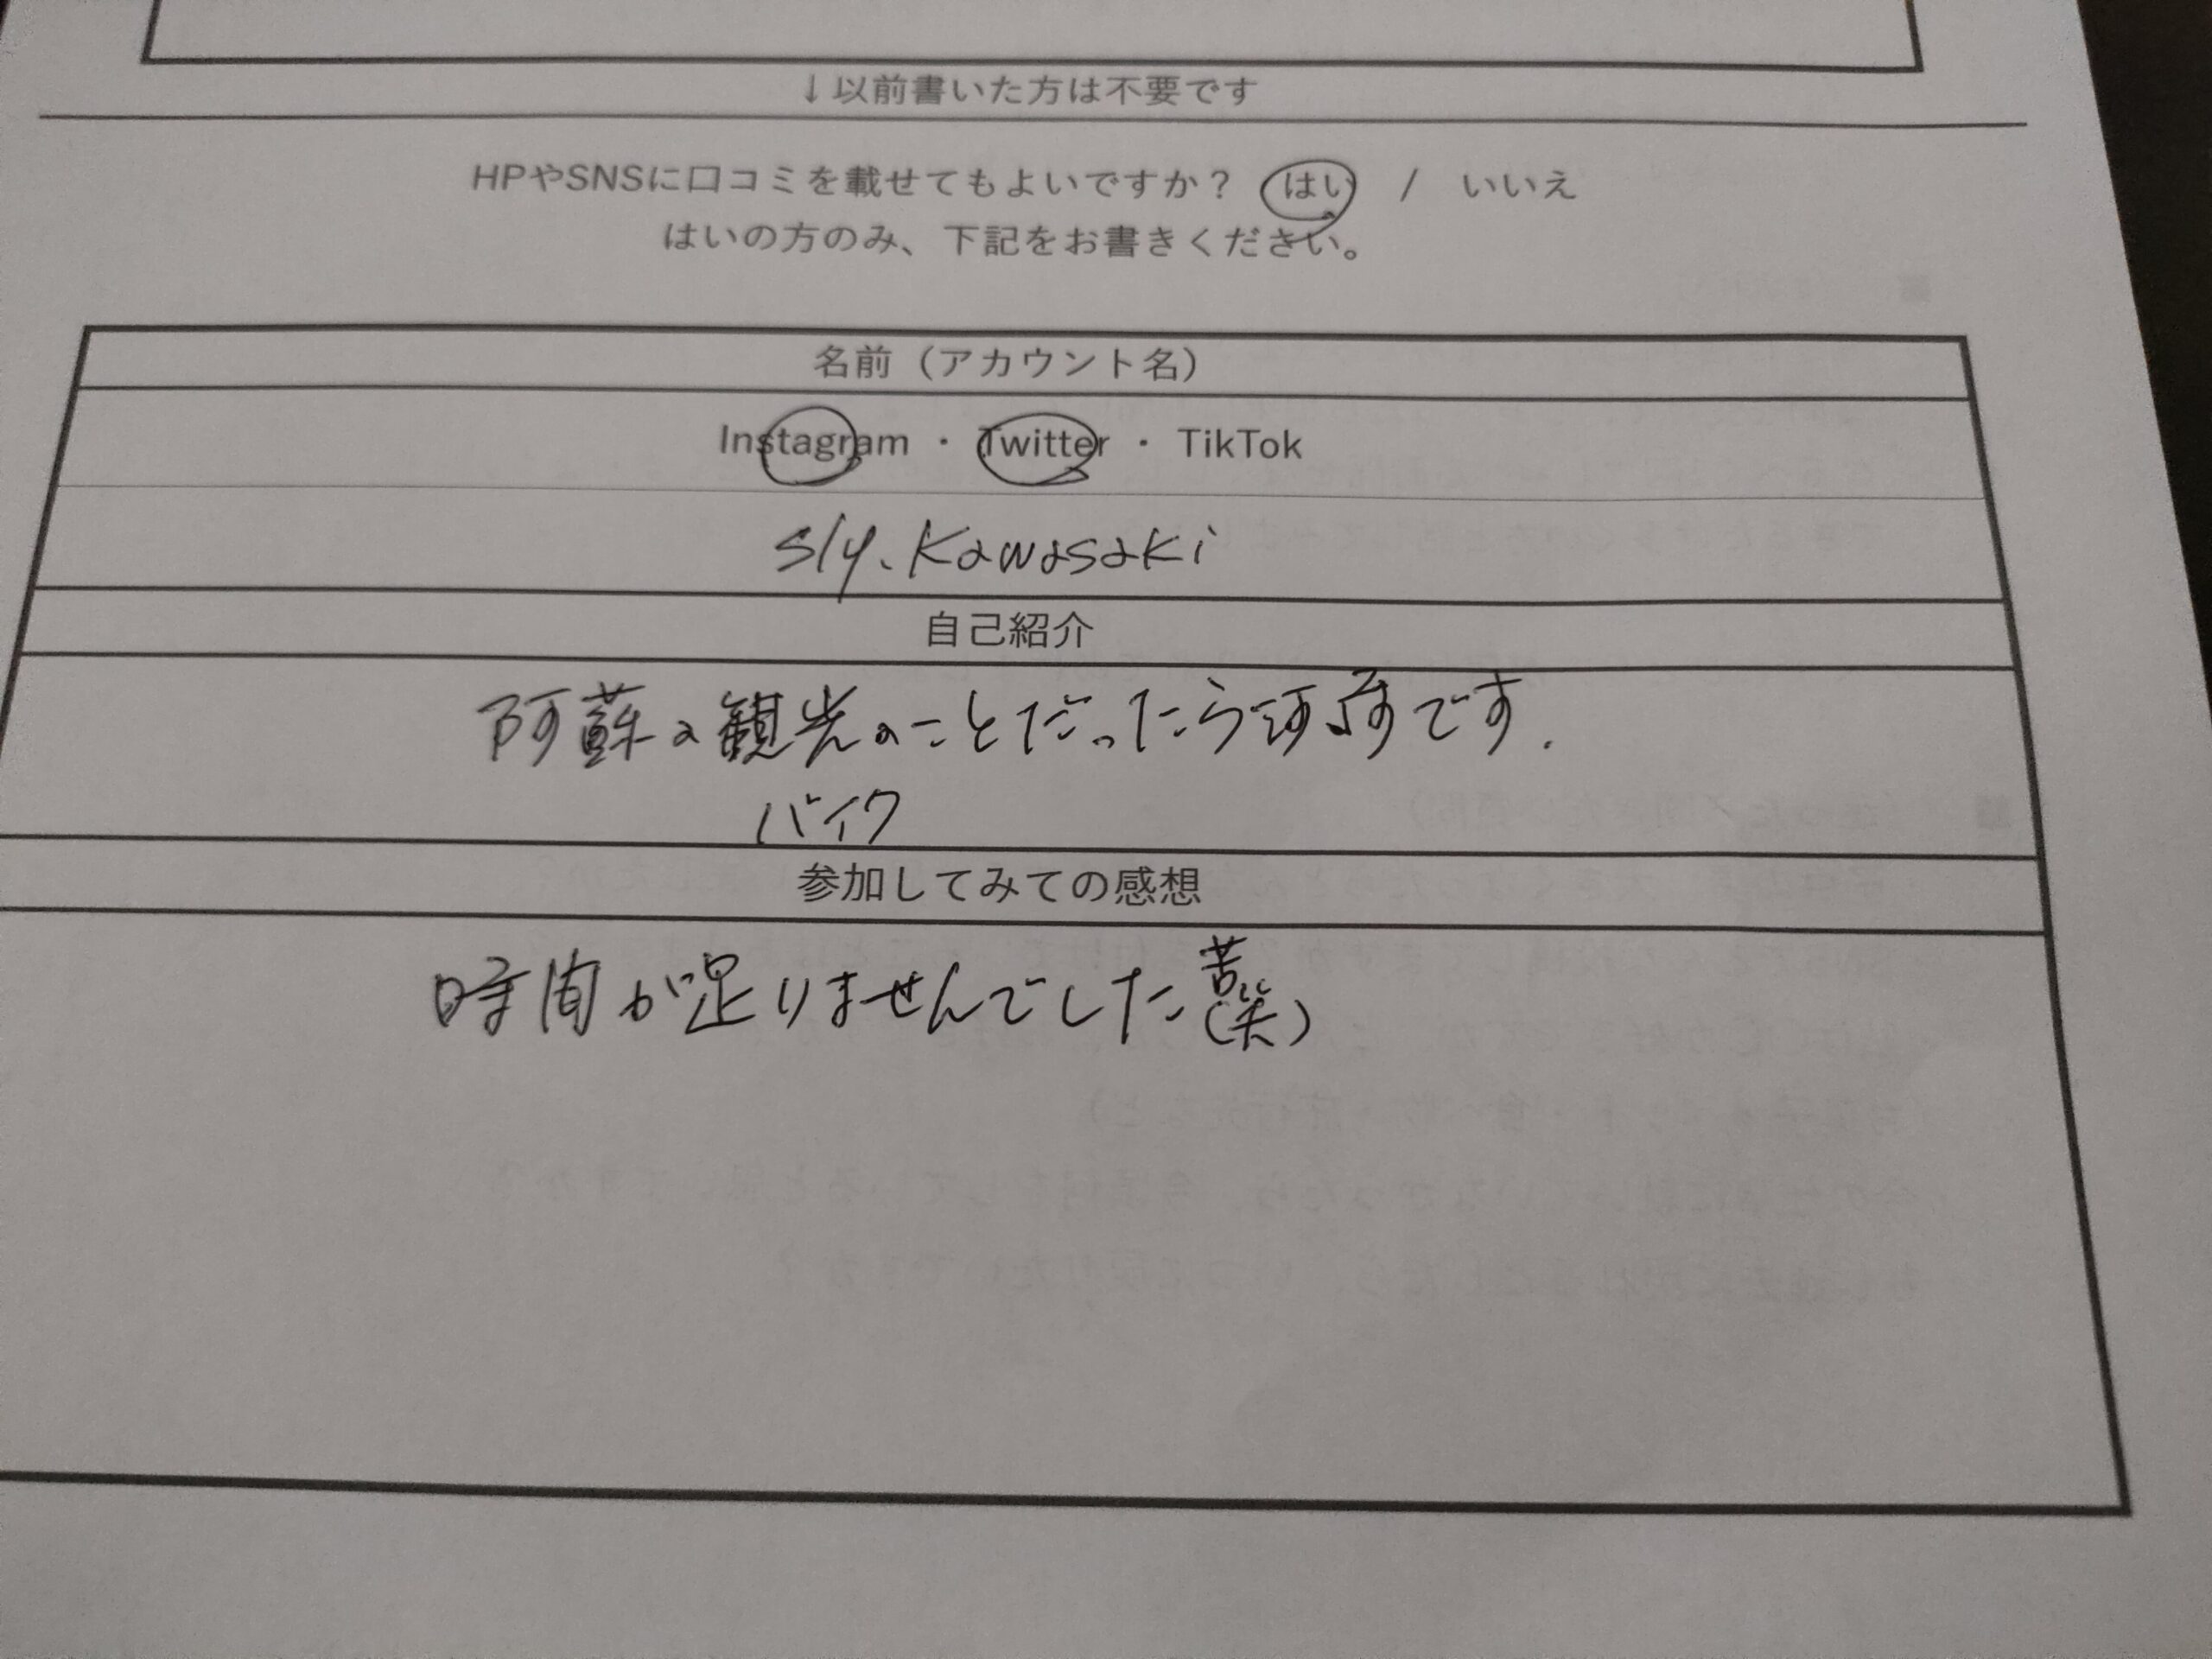 ↓以前書いた方は不要です
HPやSNSに口コミを載せてもよいですか？ はい / いいえ
はいの方のみ、下記をお書きください。
名前（アカウント名）
Instagram ・ Twitter ・ TikTok
sly.Kawasaki
自己紹介
阿蘇の観光のことだったら河原です.
バイク
参加してみての感想
時間が足りませんでした(苦笑)